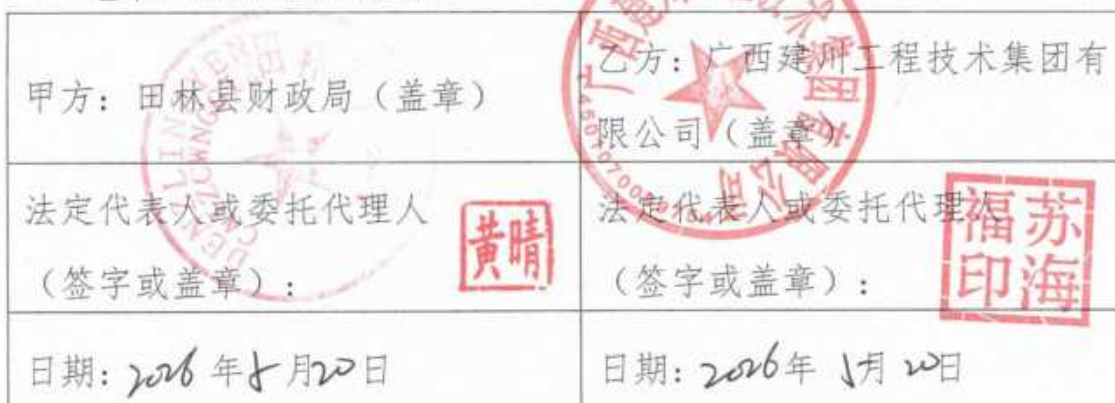 甲方：田林县财政局（盖章）
乙方：广西建川工程技术集团有
限公司（盖章）
法定代表人或委托代理人
（签字或盖章）：
黄晴
法定代表人或委托代理人
（签字或盖章）：
苏海
福印
日期：2026年5月20日
日期：2026年5月20日